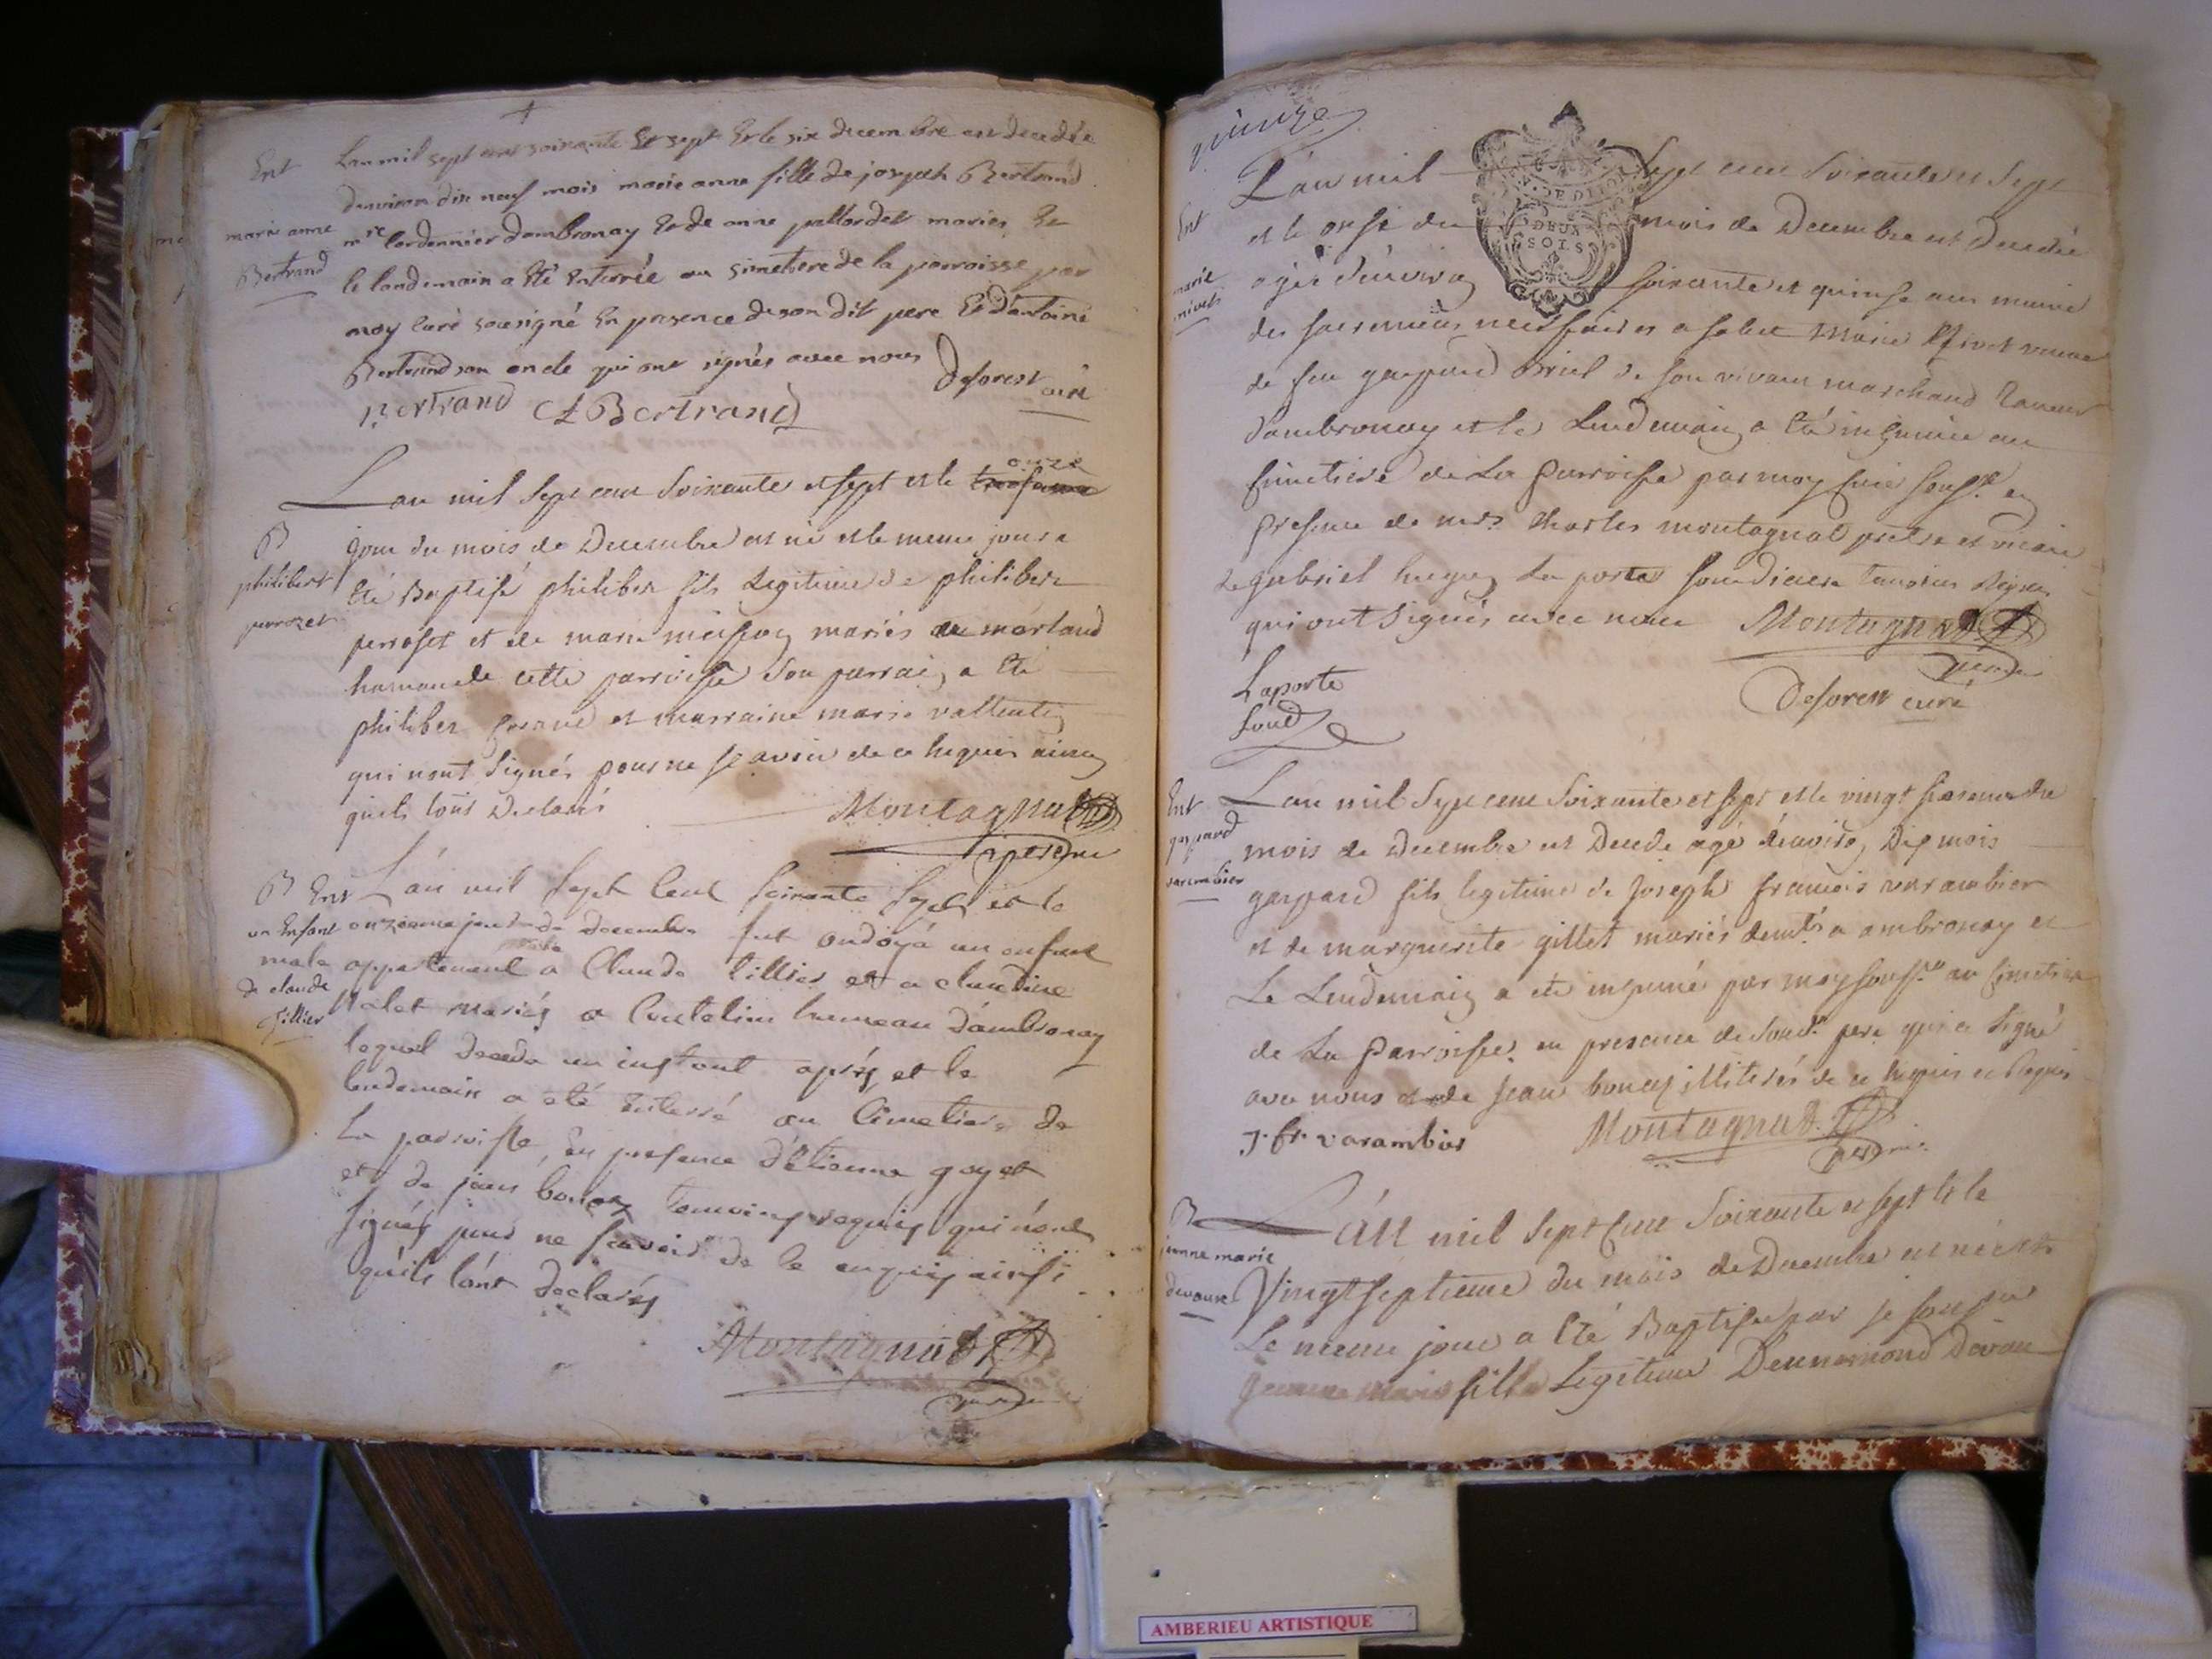 Ent
marie anne
Bertrand
Lan mil sept cent soixante Et sept Et le six decembre est decedée
denviron dix neuf mois marie anne fille de joseph Bertrand
mre Cordonnier dambronay Et de anne pallordet mariés, Et
le landemain a Eté Enterrée au simetiere de la parroisse par
moy Curé sousigné En presence de son dit pere Et d'antoine
Bertrand son oncle qui ont signés avec nous
Deforest curé
Bertrand A Bertrand
B
philibert
perrozet
Lan mil Sept cent Soixante et sept et le onze
jour du mois de Decembre est né et le meme jour a
Eté Baptisé philiber fils Legitime de philibert
perroset et de marie
mariés au morland
hameau de cette parroisse Son parrain a Eté
philiber et marraine marie vallentin
qui n'ont Signés pour ne sçavoir de ce Requis ainsy
quils l'ont Declaré
Montagnat
vicaire
B Ent
un Enfant
male
de claude
Tillier
L'an mil Sept Cent Soixante Sept et le
onzieme jour de decembre fut ondoyé un enfant
male appartenant a Claude Tillier et a claudine
mariés a Coutelieu hameau d'ambronay
lequel deceda un instant après et le
lendemain a eté Enterré au Cimetiere de
La parroisse, En presence d'Etienne goyet
et de jean boucz temoins requis qui n'ont
Signés pour ne sçavoir de ce enquis ainsi
qu'ils l'ont declarés
Montagnat
vicaire
Ent
marie
nivet
L'an mil Sept cent Soixante et Sept
et le onse du mois de Decembre est Decedée
agée d'environ soixante et quinse ans munie
des sacremens necessaires a salut Marie Nivet veuve
de feu gaspard de son vivant marchand Taneur
d'ambronay et le Lendemain a Eté inhumée au
simetiere de La Parroisse par moy Curé sousné en
presence de mre Charles montagnat pretre et vicaire
de gabriel hugues La porte temoins Requis
qui ont Signés avec nous
DEUX
SOLS
Montagnat
vicaire
Laporte
Deforest curé
Ent
gaspard
varambier
Lan mil Sept cent Soixante et sept et le vingt sixieme du
mois de Decembre est Decedé agé d'environ Dix mois
gaspard fils legitime de Joseph francois varambier
et de marguerite gillet mariés demts a ambronay et
Le Lendemain a eté inhumé par moy sousné au simetiere
de La Parroisse en presence de Sondt pere qui a Signé
avec nous et de jean boucz illiteré de ce Enquis et Requis
J. fr. varambier
Montagnat
vicaire
B
jeanne marie
devaux
L'an mil Sept Cent Soixante et sept et le
Vingt septieme du mois de Decembre est née et
Le meme jour a Eté Baptisée par je sousné
jeanne marie fille Legitime Dennemond Devaux
AMBERIEU ARTISTIQUE